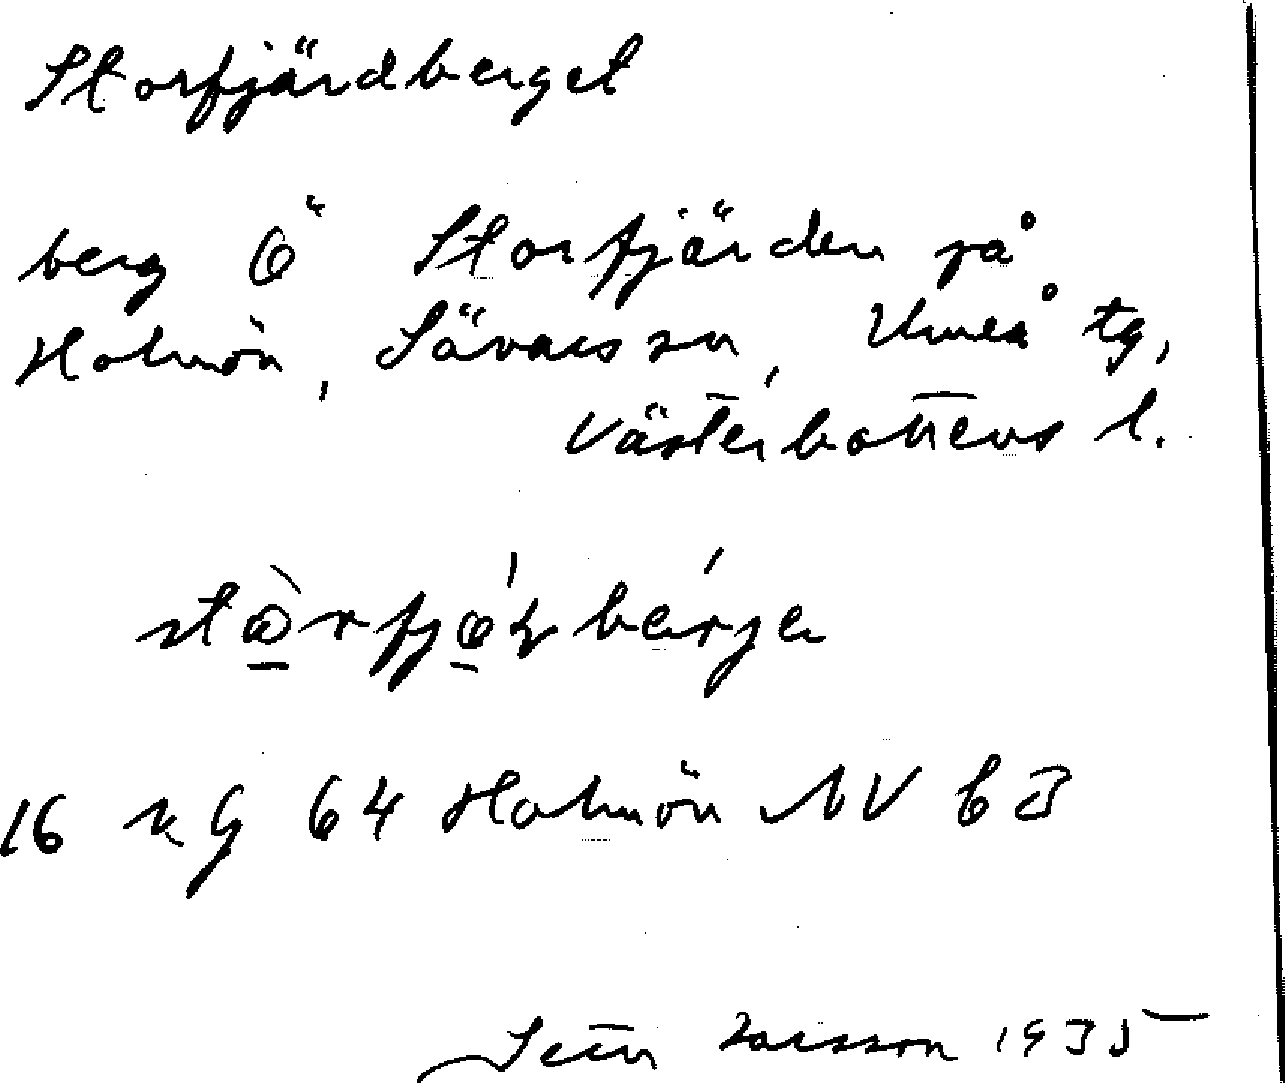 Storfjärdberget
berg Ö Storfjärden på
Holmön, Sävars sn, Umeå tg,
Västerbottens l.
16 64 Holmön NV b 3
Larsson 1935